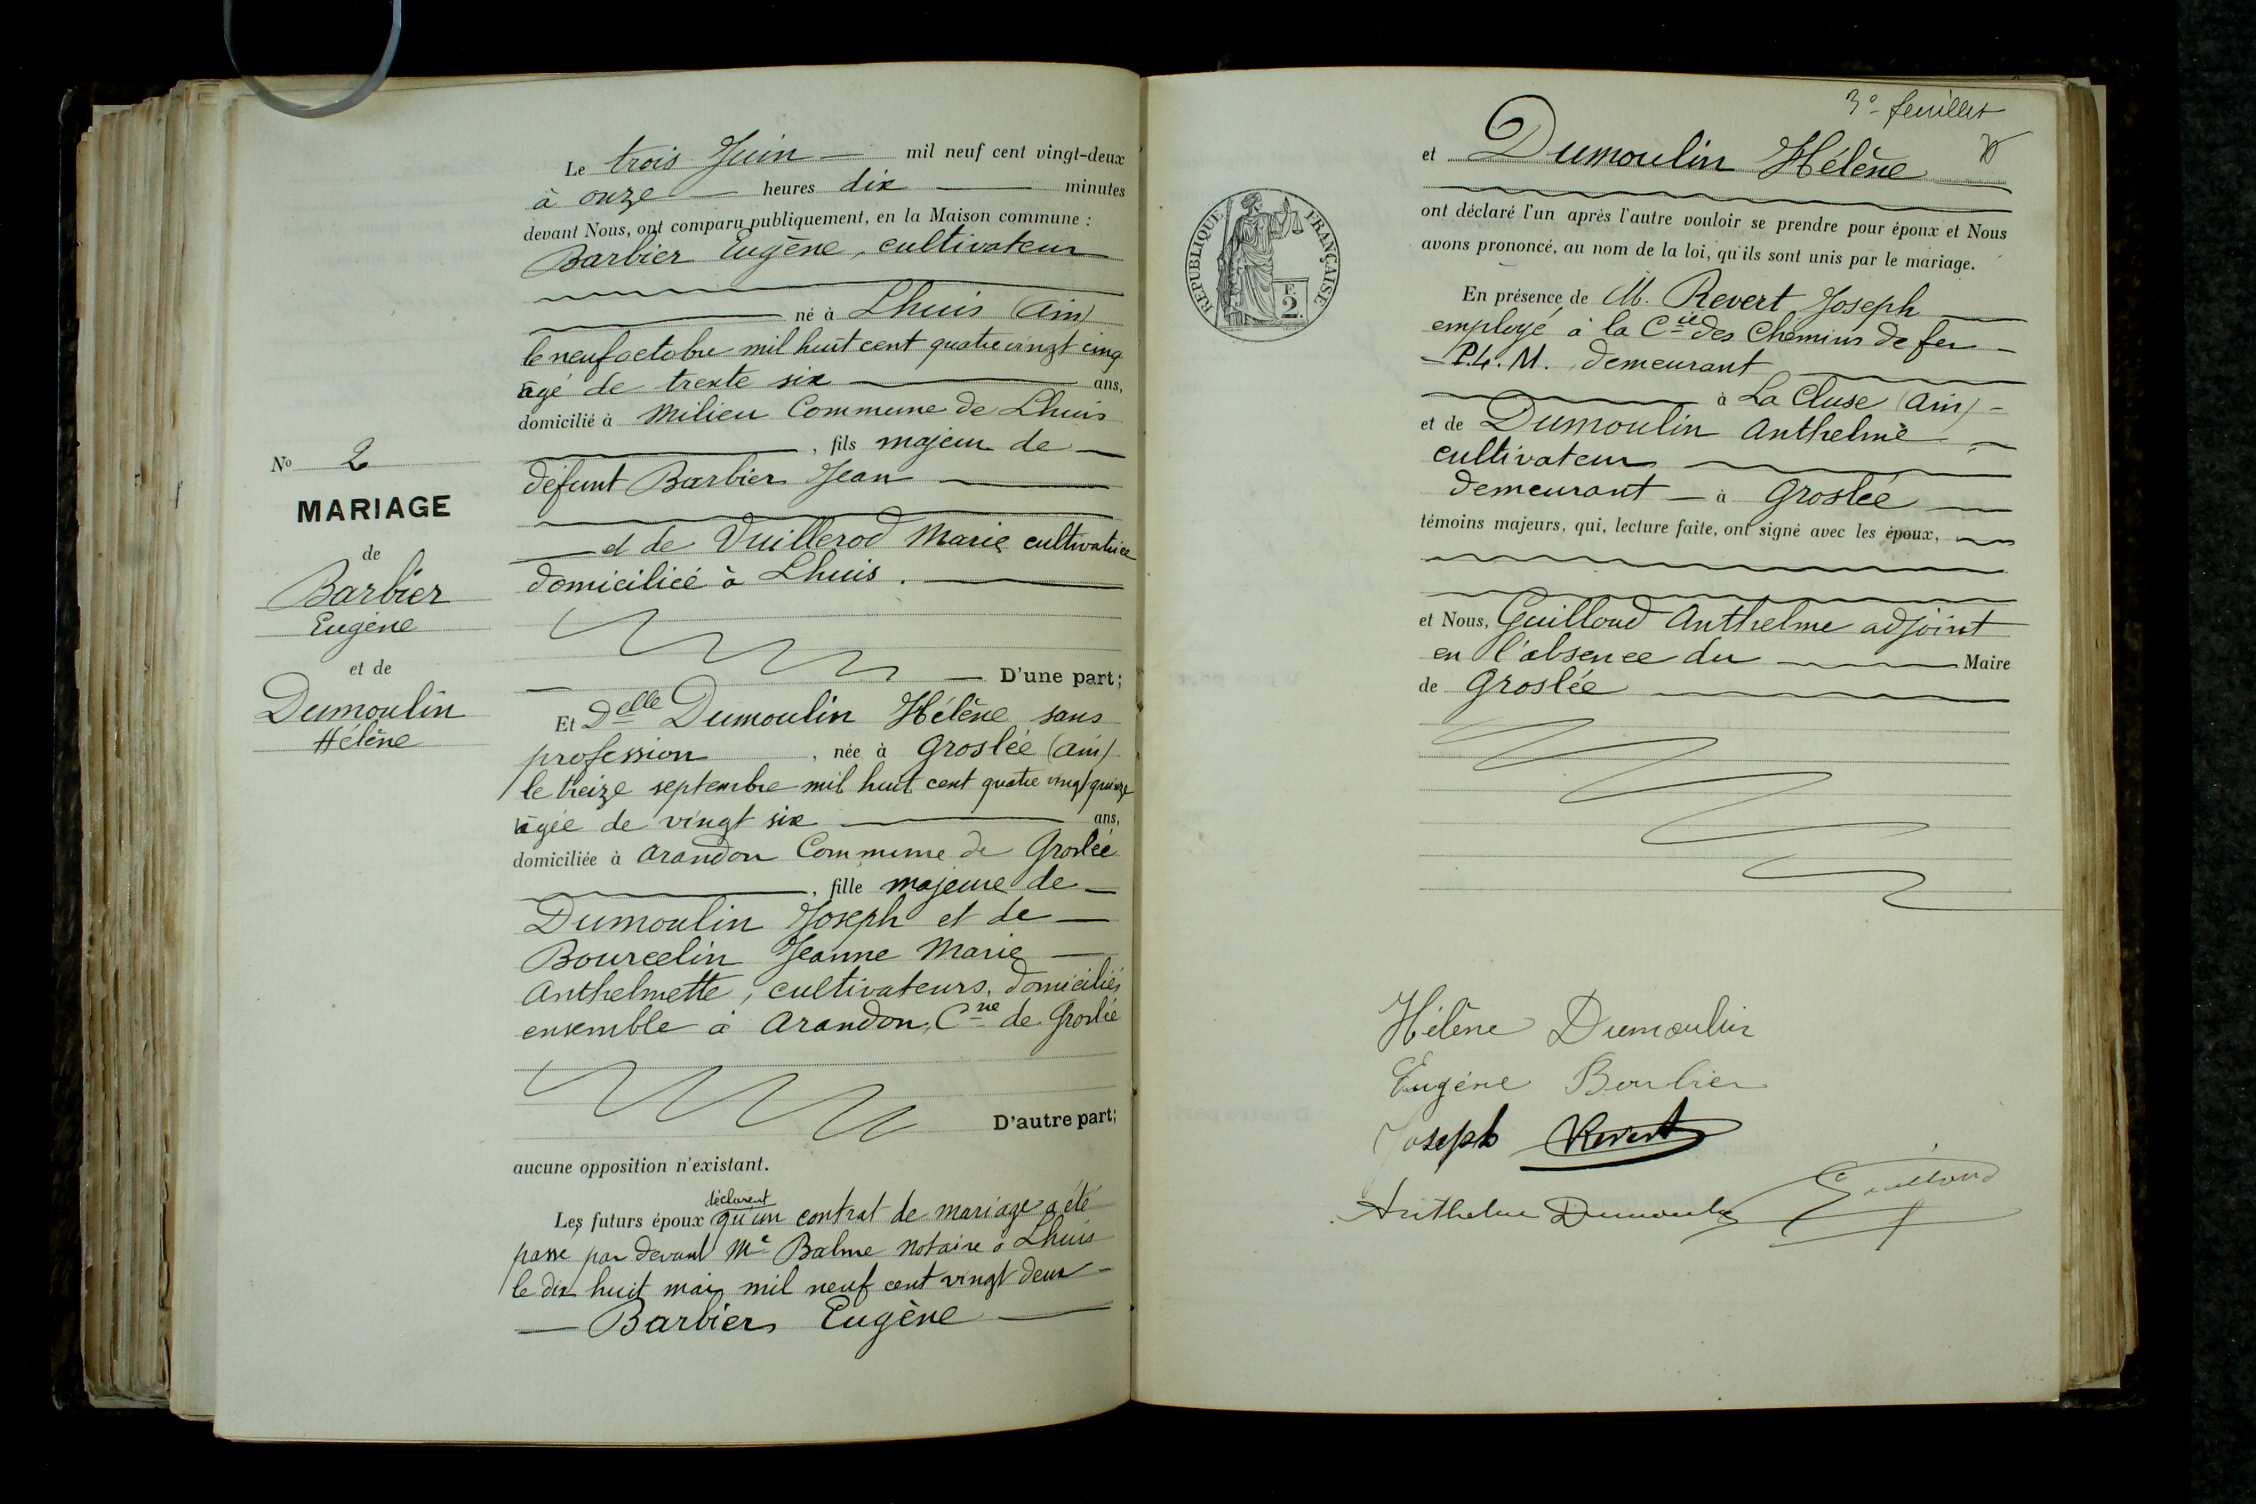 Le trois Juin mil neuf cent vingt-deux
à onze heures dix minutes
devant Nous, ont comparu publiquement, en la Maison commune :
Barbier Eugène, cultivateur
né à Lhuis (Ain)
le neuf octobre mil huit cent quatre vingt cinq
âgé de trente six ans,
domicilié à Milieu Commune de Lhuis
, fils majeur de
défunt Barbier Jean
et de Vuillerod Marie cultivatrice
domiciliée à Lhuis.
D'une part;
Et Delle Dumoulin Hélène sans
profession, née à Groslée (Ain)
le treize septembre mil huit cent quatre vingt quinze
âgée de vingt six ans,
domiciliée à Arandon Commune de Groslée
, fille majeure de
Dumoulin Joseph et de
Bourcelin Jeanne Marie
Anthelmette, cultivateurs, domiciliés
ensemble à Arandon, Cne de Groslée
D'autre part;
aucune opposition n'existant.
Les futurs époux déclarent qu'un contrat de mariage a été
passé par devant Me Balme notaire à Lhuis
le dix huit mai mil neuf cent vingt deux
Barbier Eugène
No 2
MARIAGE
de
Barbier
Eugène
et de
Dumoulin
Hélène
3e feuillet
et Dumoulin Hélène
ont déclaré l'un après l'autre vouloir se prendre pour époux et Nous
avons prononcé, au nom de la loi, qu'ils sont unis par le mariage.
En présence de M. Revert Joseph
employé à la Cie des Chemins de fer
P.L.M. demeurant
à La Cluse (Ain)
et de Dumoulin Anthelme
cultivateur
demeurant à Groslée
témoins majeurs, qui, lecture faite, ont signé avec les époux,
et Nous, Guilloud Anthelme adjoint
en l'absence du Maire
de Groslée
RÉPUBLIQUE FRANÇAISE
F.
2
Hélène Dumoulin
Eugène Barbier
Joseph Revert
Anthelme Dumoulin
Guilloud